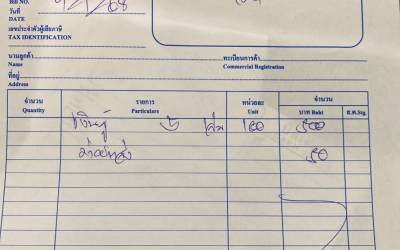 BILL NO.
วันที่ 9/1/68
DATE
เลขประจำตัวผู้เสียภาษี
TAX IDENTIFICATION
นามลูกค้า ทะเบียนการค้า
Name Commercial Registration
ที่อยู่
Address
จำนวน รายการ หน่วยละ จำนวน
Quantity Particulars Unit บาท Baht ส.ต.Stg.
5 เล่ม 100 500
ค่าขนส่ง 50